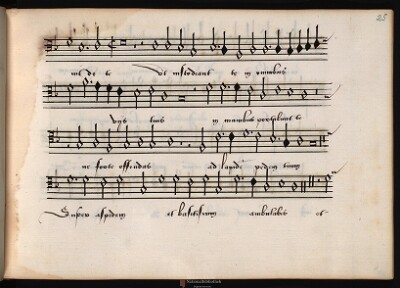 25
de te ut custodiant te in omnibus
vijs tuis in manibus portabunt te
ne forte offendas ad lapidem pedem tuum
Super aspidem et basiliscum ambulabis et